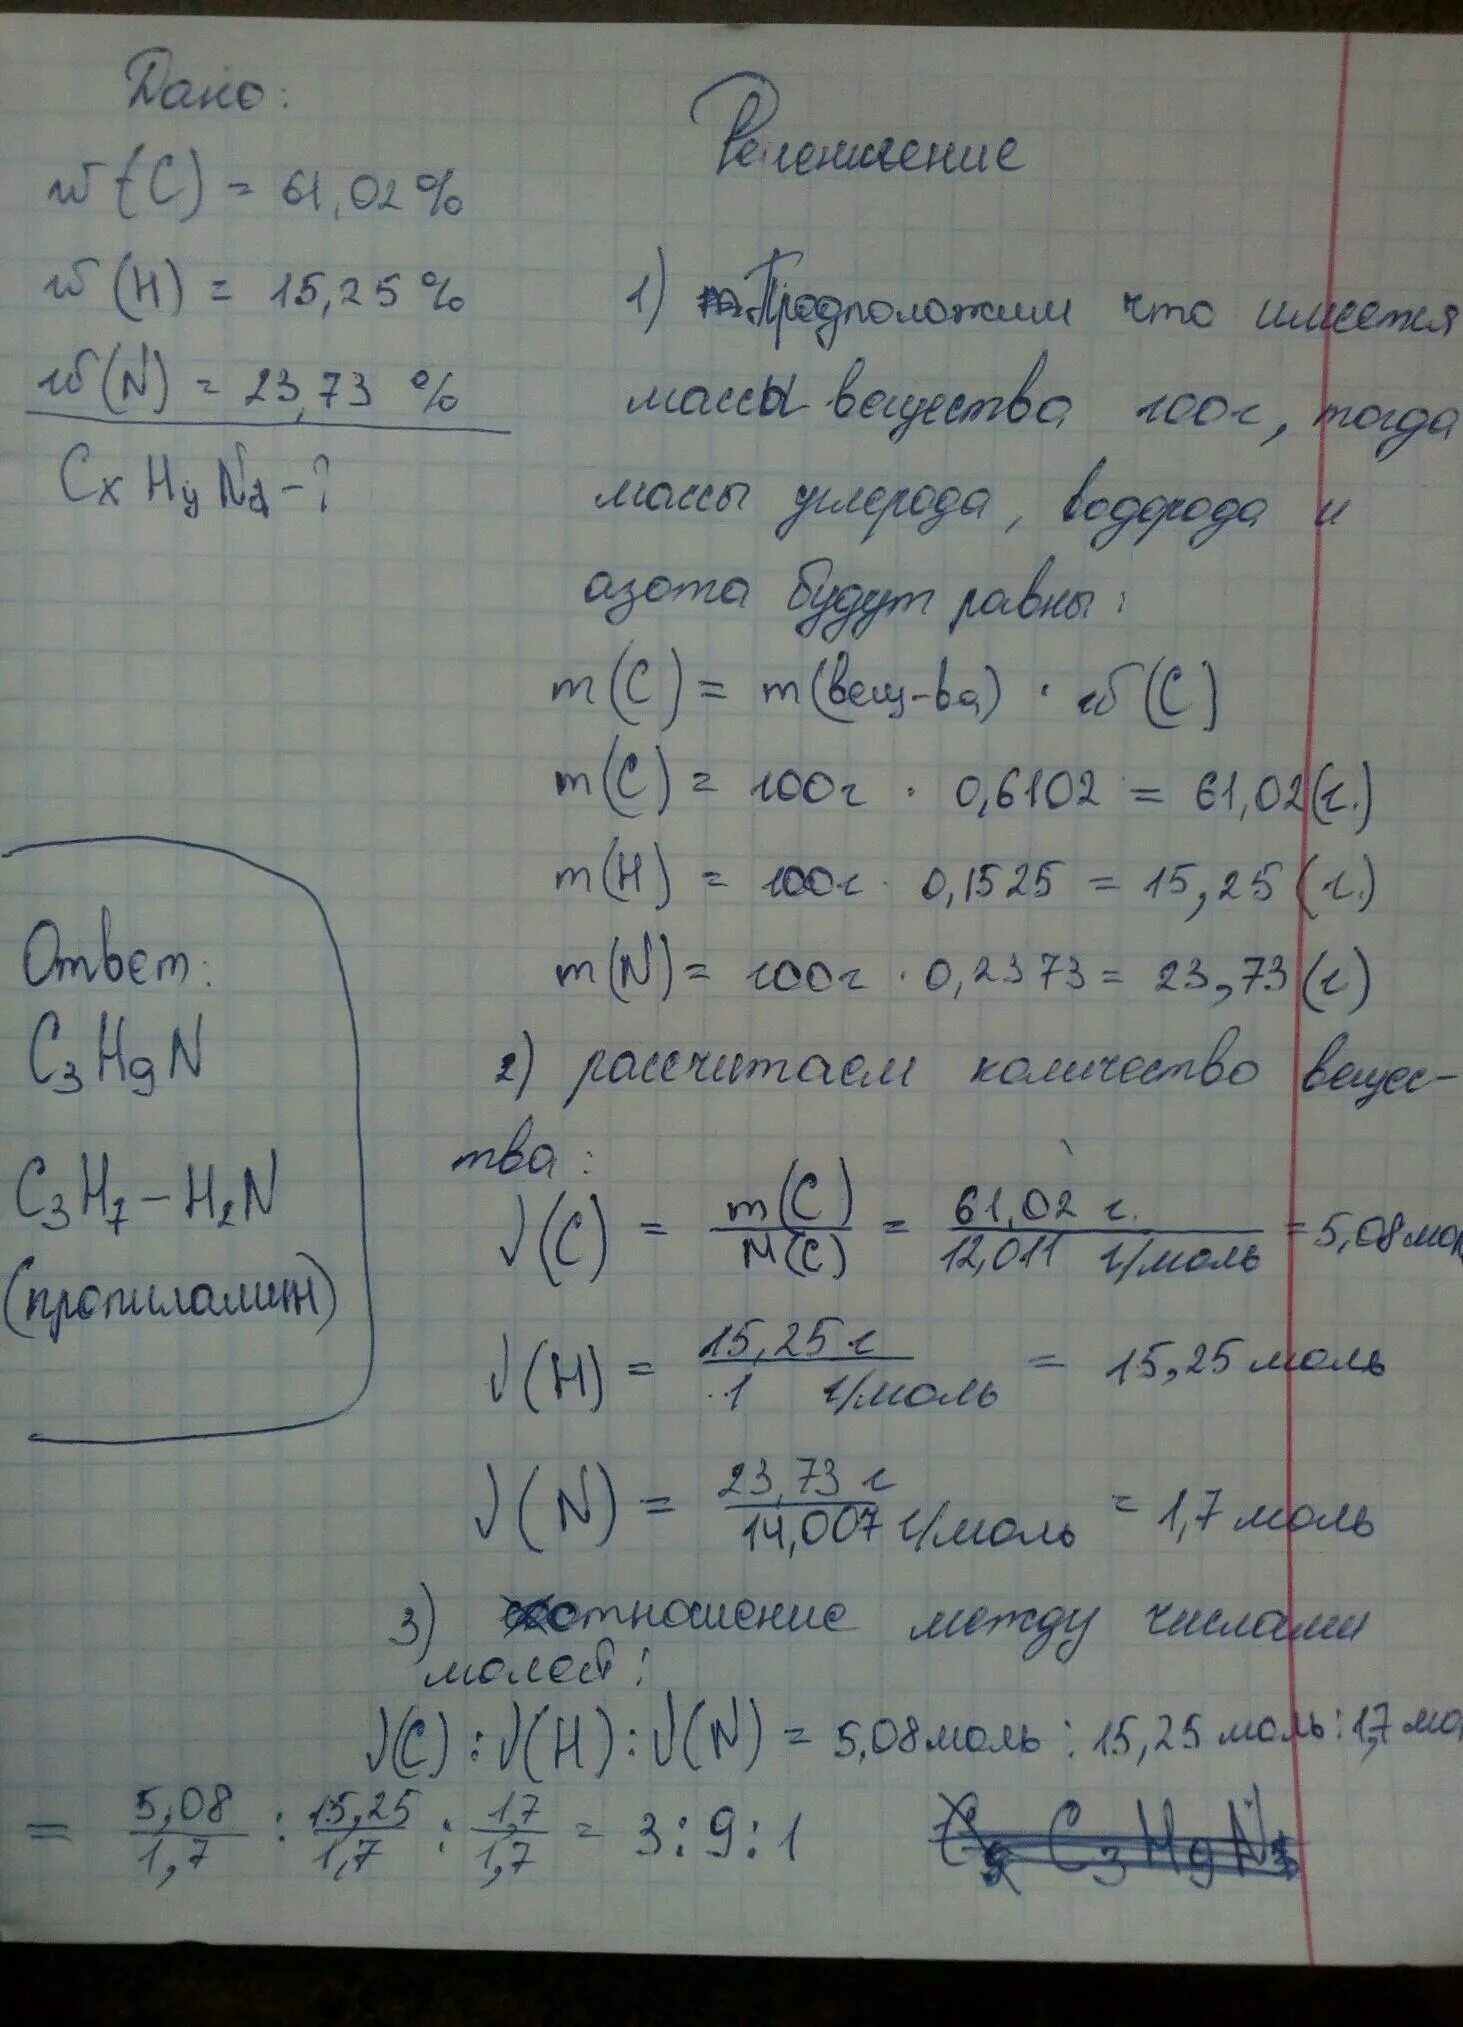 Дано:
w(C) = 61,02%
w(H) = 15,25%
w(N) = 23,73 %
Cx Hy Nz - ?
Решение
1) Предположим что имеется
массы вещества 100г, тогда
массы углерода, водорода и
азота будут равны:
m(C) = m(вещ-ва) · w(C)
m(C) = 100г · 0,6102 = 61,02(г.)
m(H) = 100г · 0,1525 = 15,25(г.)
m(N) = 100г · 0,2373 = 23,73(г)
2) рассчитаем количество вещес-
тва:
ν(C) = m(C)/M(C) = 61,02 г./12,011 г/моль = 5,08мол
ν(H) = 15,25 г/1 г/моль = 15,25 моль
ν(N) = 23,73 г/14,007 г/моль = 1,7 моль
3) отношение между числами
молей:
ν(C) : ν(H) : ν(N) = 5,08 моль : 15,25 моль : 1,7 мо
= 5,08/1,7 : 15,25/1,7 : 1,7/1,7 = 3:9:1
C3H9N1
Ответ:
C3H9N
C3H7 - H2N
(пропиламин)